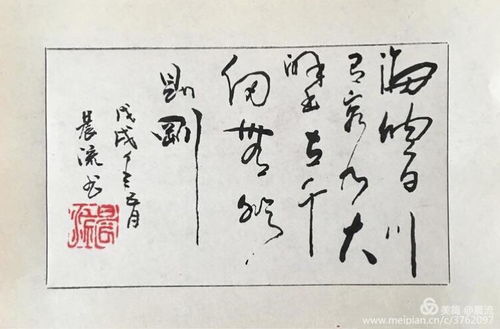 海納百川
有容乃大
壁立千
仞無欲
則剛
戊戌
晨流书
美篇 @晨流
www.meipian.cn/c/3762097